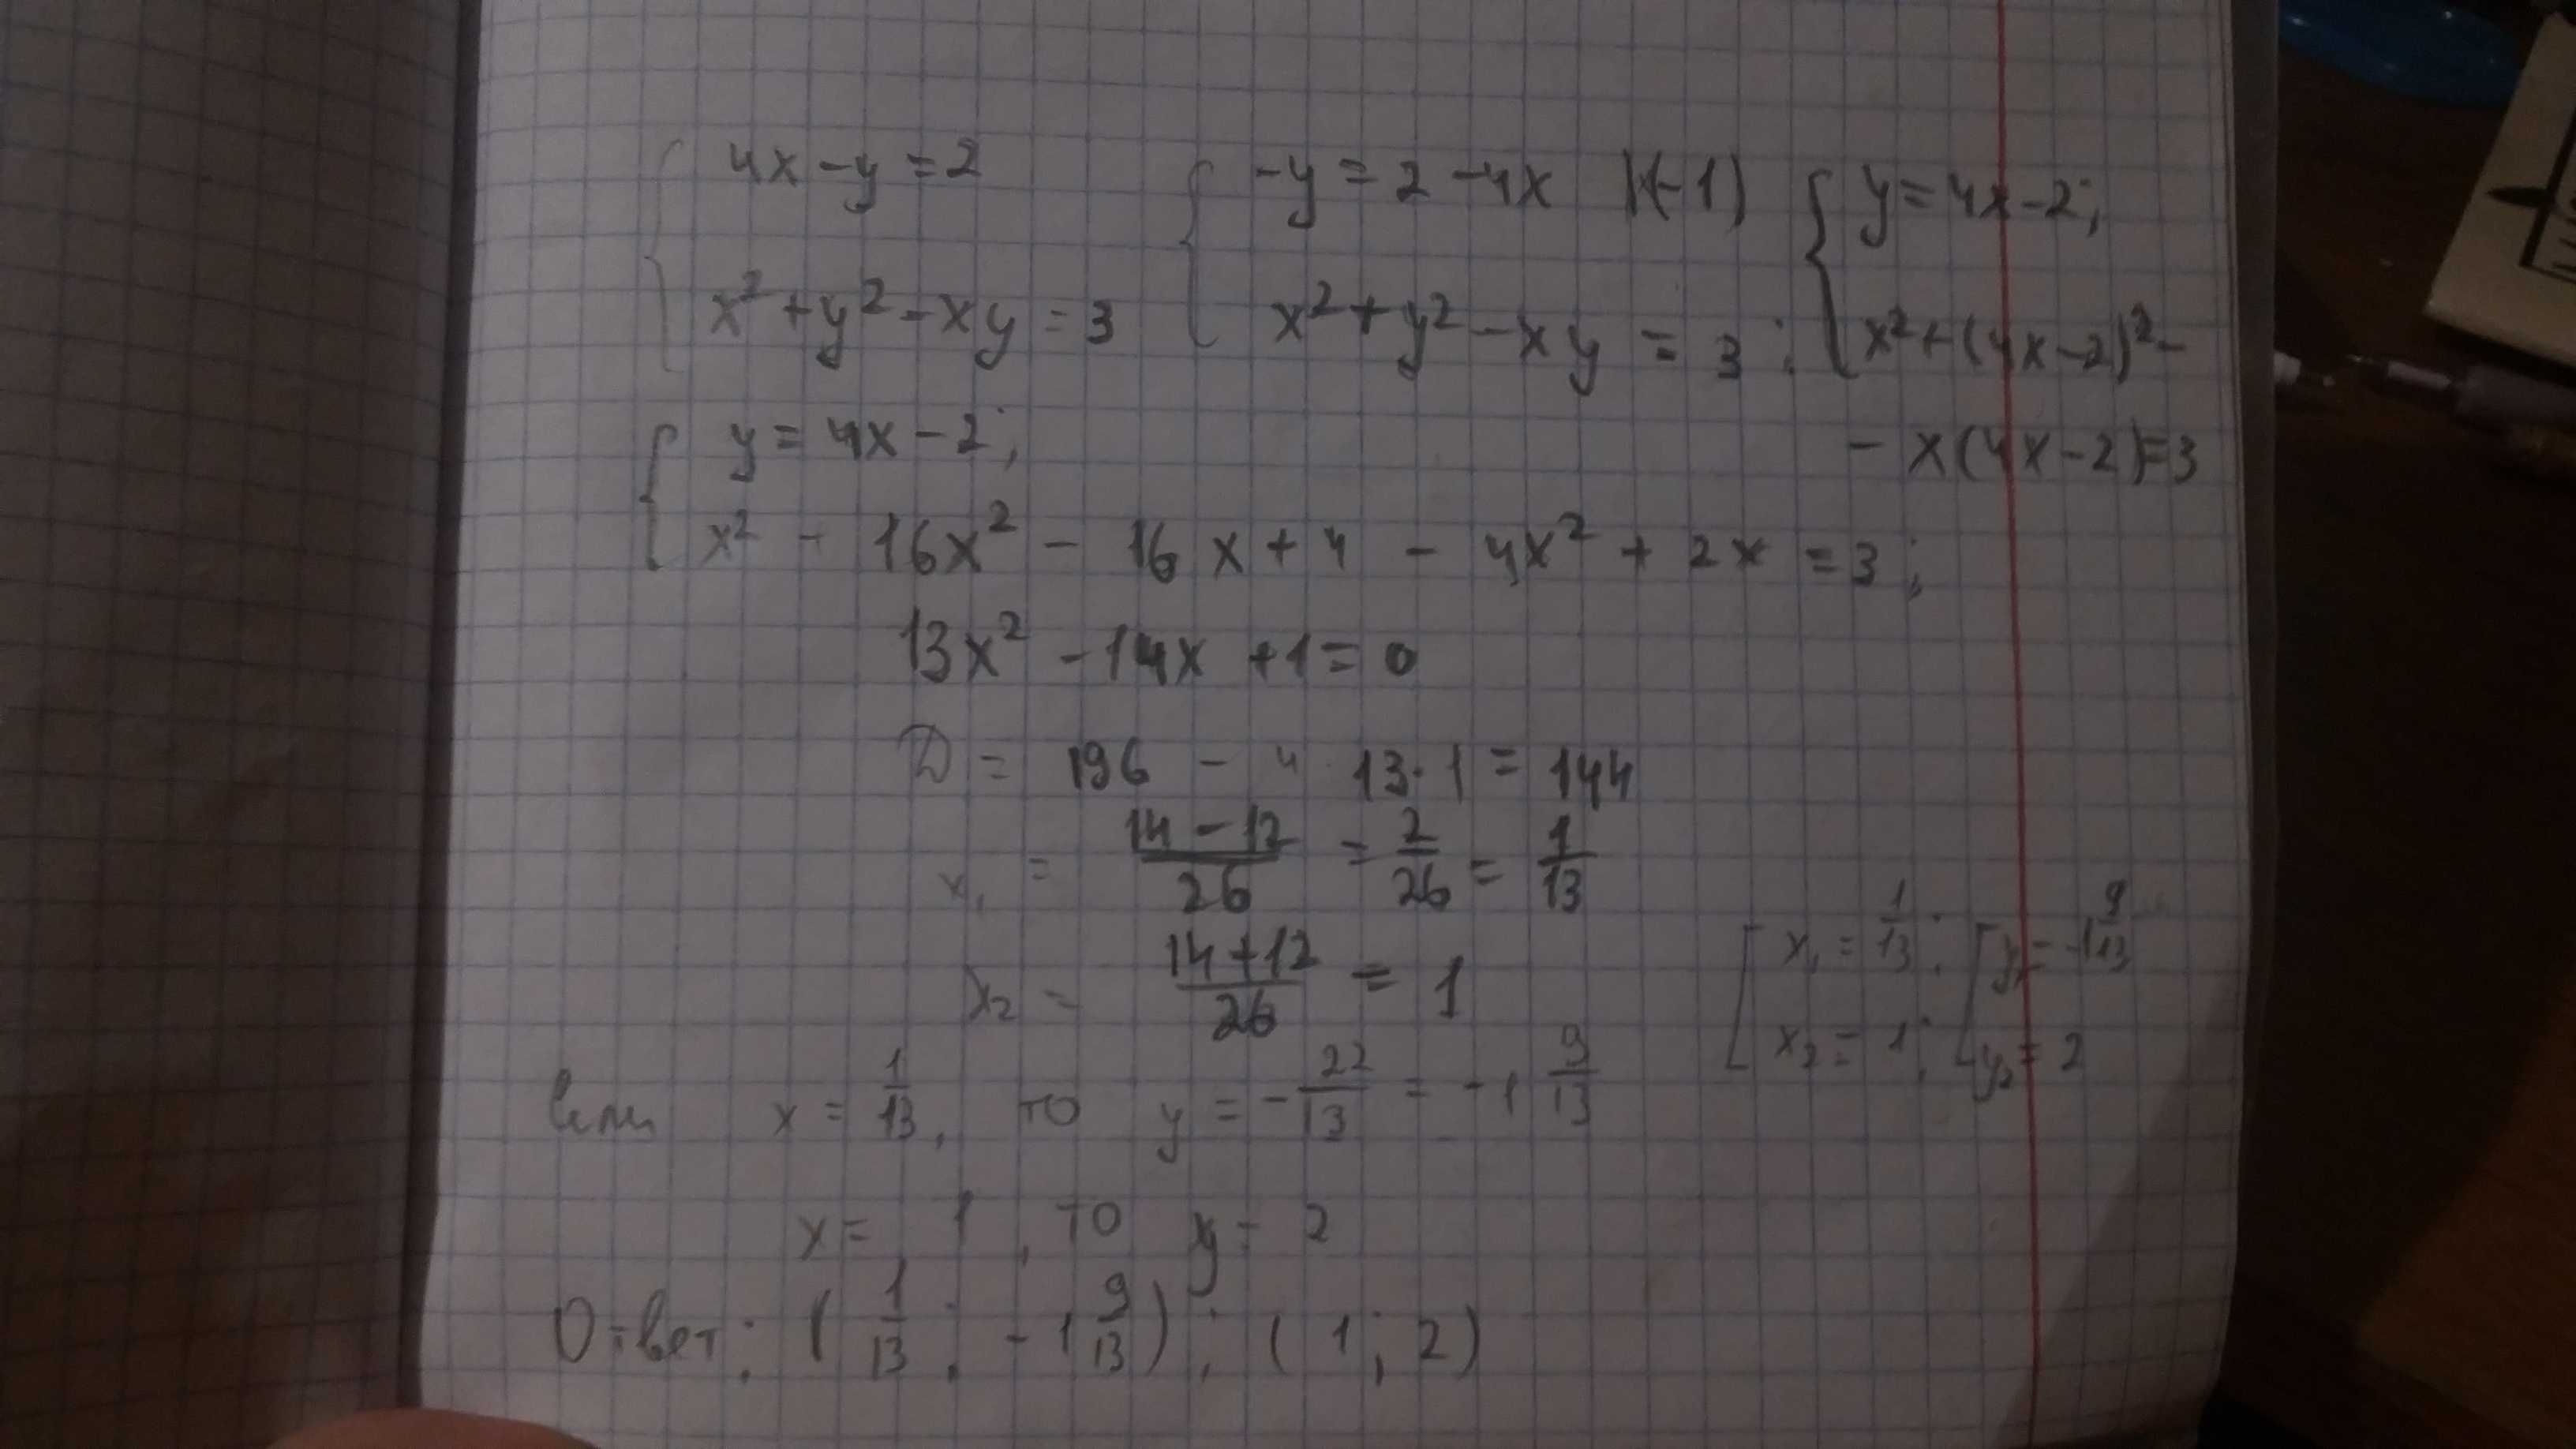 4x - y = 2   -y = 2 - 4x |·(-1)   y = 4x - 2;
x² + y² - xy = 3   x² + y² - xy = 3;   x² + (4x - 2)² -
y = 4x - 2;   - x(4x - 2) = 3
x² + 16x² - 16x + 4 - 4x² + 2x = 3;
13x² - 14x + 1 = 0
D = 196 - 4·13·1 = 144
x₁ = (14 - 12)/26 = 2/26 = 1/13
x₂ = (14 + 12)/26 = 1
x₁ = 1/13;   y₁ = -1 9/13
x₂ = 1;   y₂ = 2
если x = 1/13, то y = -22/13 = -1 9/13
x = 1, то y = 2
Ответ: (1/13; -1 9/13); (1; 2)